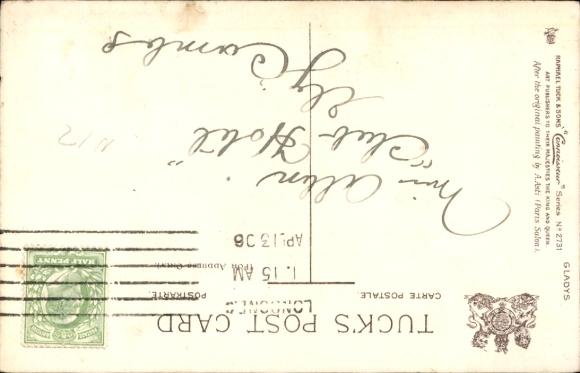 TUCK'S POST CARD
CARTE POSTALE.
POSTKARTE.
(FOR ADDRESS ONLY.)
1.15 AM
AP 13 06
HALF PENNY
Miss Allen
"Club Hotel"
Ely
Cambs
N12
GLADYS
RAPHAEL TUCK & SONS' "Connoisseur" Series Nº 2731
ART PUBLISHERS TO THEIR MAJESTIES THE KING AND QUEEN.
After the original painting by A. Asti (Paris Salon).